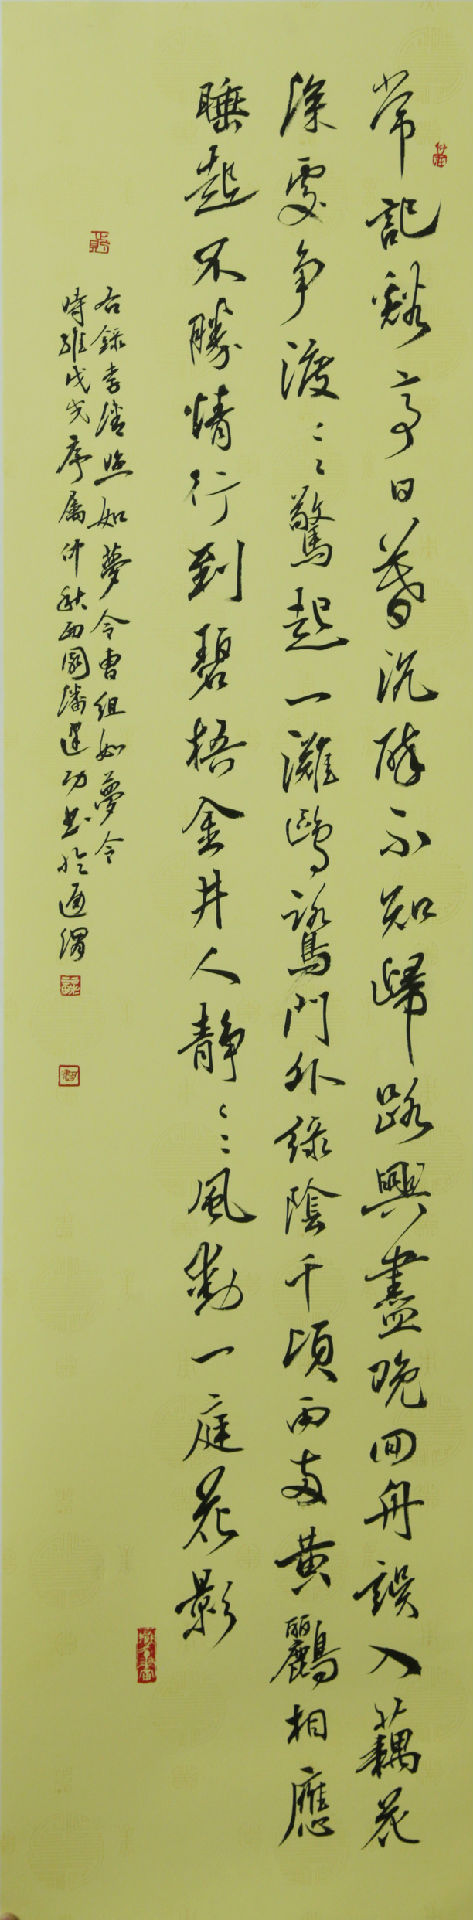 常記谿亭日暮沉醉不知歸路興盡晚回舟誤入藕花
深處争渡〻〻驚起一灘鷗鷺門外緑陰千頃兩兩黄鸝相應
睡起不勝情行到碧梧金井人静〻〻風動一庭花影
右録李清照如夢令曹組如夢令
時維戊戌序属仲秋西園潘建功書於通渭